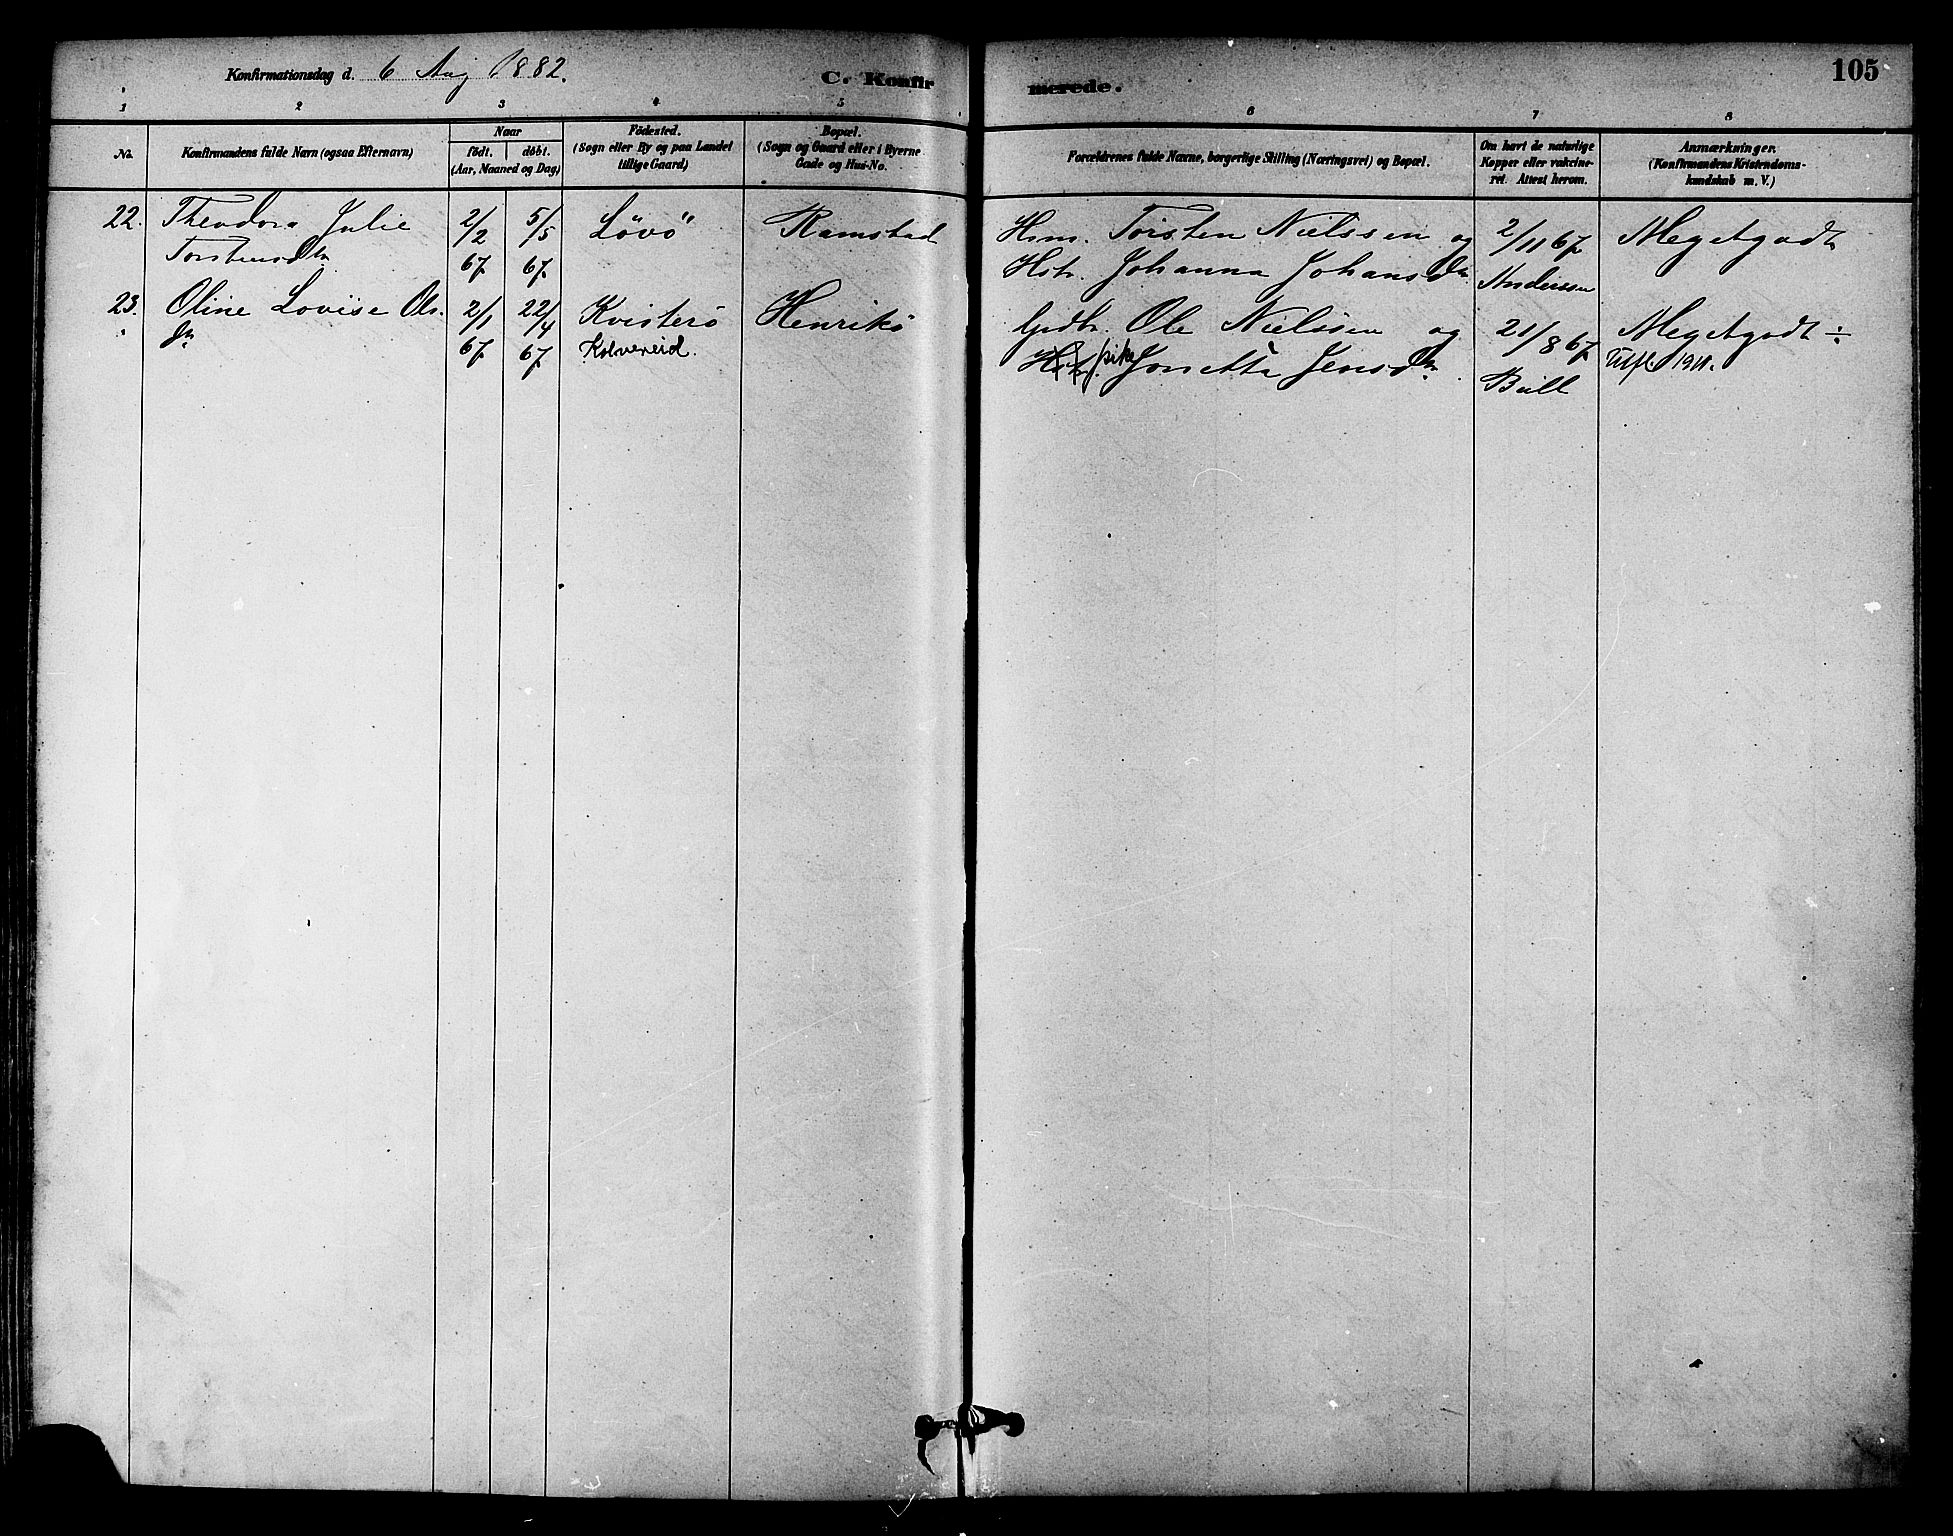 Konfirmationsdag d. 6 Aug 1882.
C. Konfirmerede.
105
1 2 3 4 5 6 7 8
No.
Konfirmandens fulde Navn (ogsaa Efternavn)
Naar
födt. döbt.
(Aar, Maaned og Dag)
Födested.
(Sogn eller By og paa Landet
tillige Gaard)
Bopæl.
(Sogn og Gaard eller i Byerne
Gade og Hus-No.
Forældrenes fulde Navne, borgerlige Stilling (Næringsvei) og Bopæl.
Om havt de naturlige
Kopper eller vakcine-
ret. Attest herom.
Anmærkninger.
(Konfirmandens Kristendoms-
kundskab m. V.)
22. Theodora Julie 2/2 5/5 Lövö Ramstad Hsm. Torsten Nielssen og 2/11 67 Megetgodt
Torstensdtr 67 67. Hstr. Johanna Johansdtr Anderssen
23. Oline Lovise Ols. 2/1 22/4 Kvisterö Henrikö Gdbr. Ole Nielssen og 21/8 67 Megetgodt ÷
dtr 67 67. Kolvereid. Hstr. pike Jonetta Jensdtr. Bull 1911.